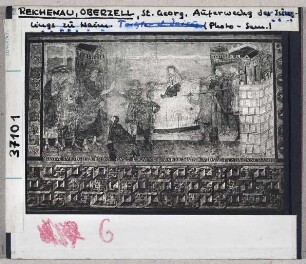 REICHENAU, OBERZELL, St. Georg, Auferweckg des Jüng
lings zu Naim. (Photo-Sem.)
37101
6